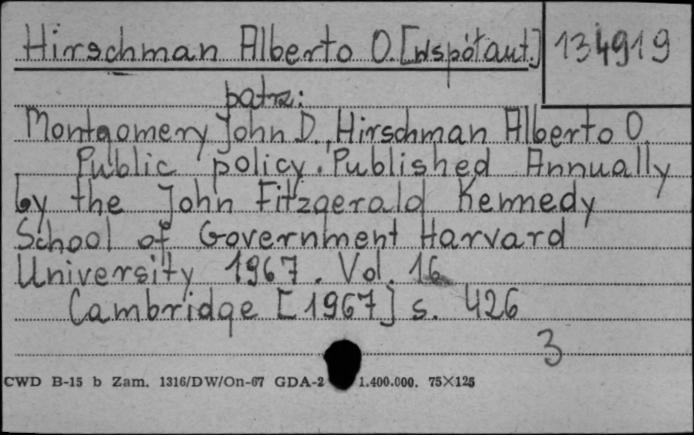 Hirschman Alberto O. [współaut.] 134919
patrz:
Montgomery John D., Hirschman Alberto O.
Public policy. Published Annually
by the John Fitzgerald Kennedy
School of Government Harvard
University 1967. Vol. 16
Cambridge [1967] s. 426
3
CWD B-15 b Zam. 1316/DW/On-67 GDA-2 1.400.000. 75×125